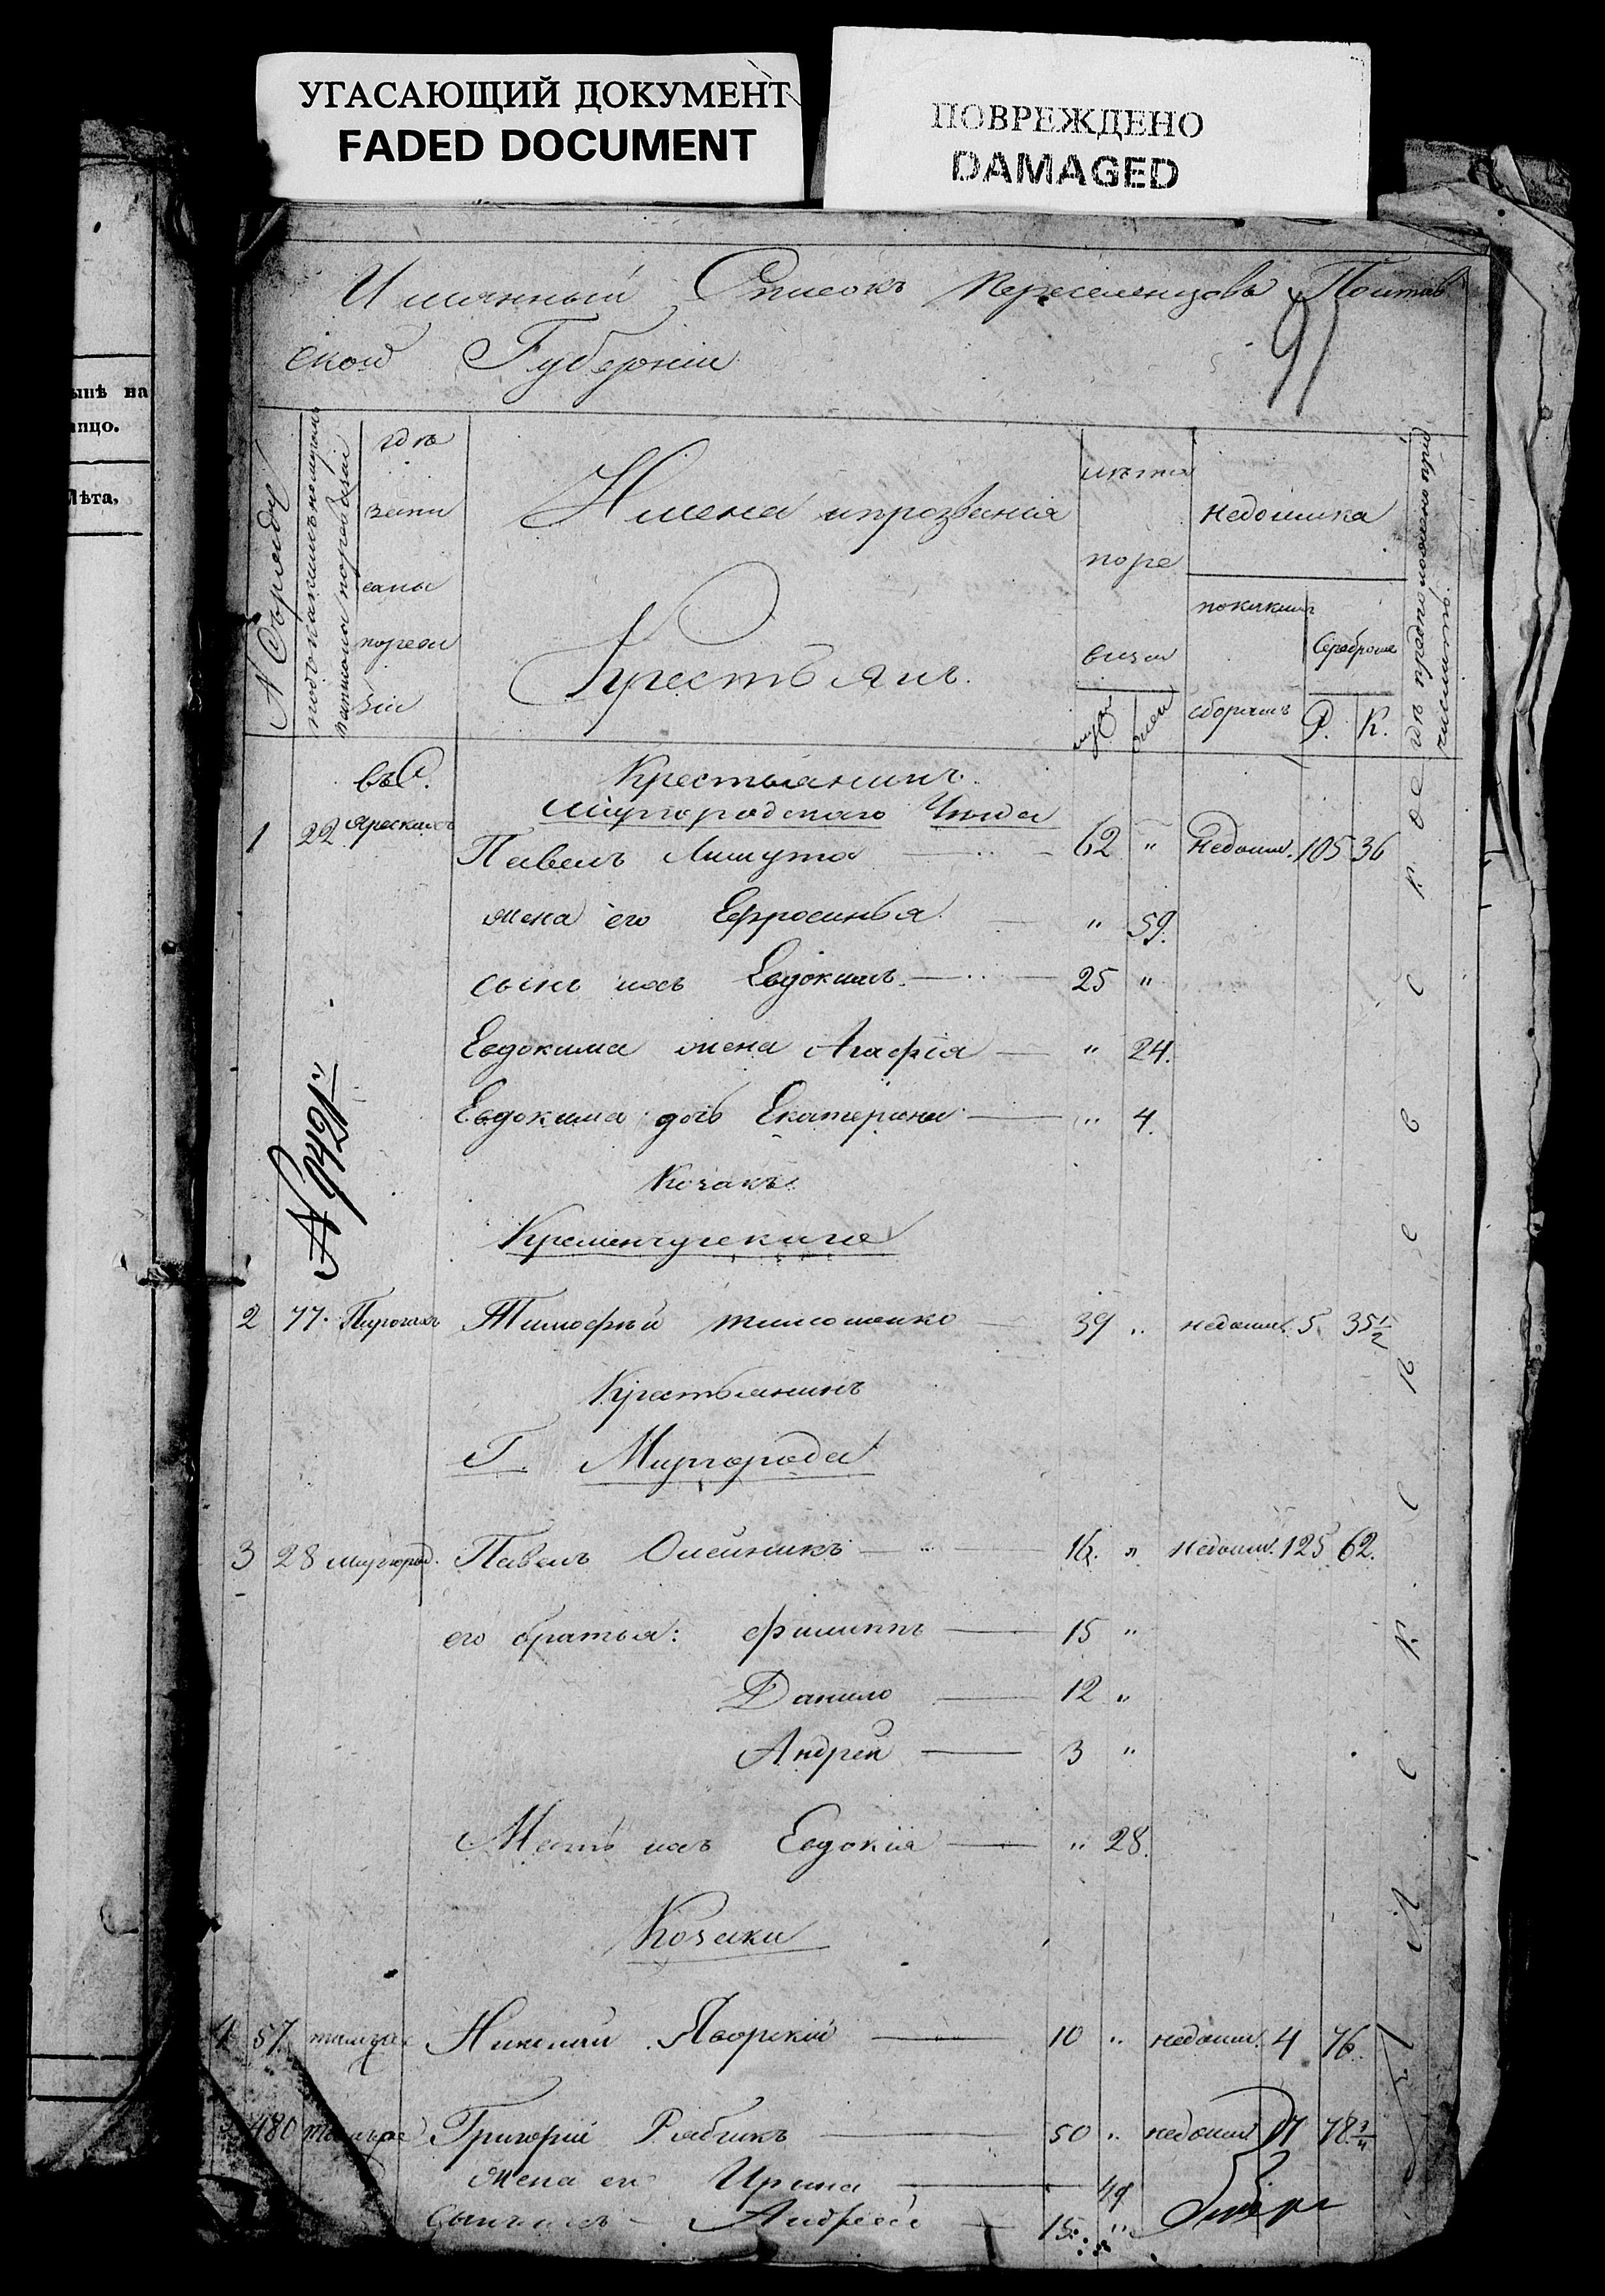 УГАСАЮЩИЙ ДОКУМЕНТ
FADED DOCUMENT
ПОВРЕЖДЕНО
DAMAGED
ынѣ на
лицо.
Лѣта.
Имянный Списокъ переселенцовъ Полтав
ской Губерніи
91
N Съ ряду
подъ какимъ номеромъ написаны по ревизіи
гдѣ
запи
саны
по реви
зіи
Имена и прозванія
Крестьянъ.
лѣта
по ре
визіи
муж
жен
Недоимка
по какимъ
сборамъ
Серебромъ
Р. К.
гдѣ предположено при
числить.
въ С. Крестьянинъ
Миргородскаго Уѣзда
1 22 Яреськахъ Павелъ Лишута 62 " Недоим. 105 36
жена его Ефросинья " 59.
сынъ ихъ Евдокимъ 25 "
Евдокима жена Агафія " 24.
Евдокима дочь Екатерина " 4.
N 9421
Козакъ
Кременчугскаго
2 77. Пирогахъ Тимофѣй Тимошенко 39 " недоим. 5 35 1/2
Крестьянинъ
Г. Миргорода
3 28 Миргород. Павелъ Олейникъ 16. " Недоим. 125 62.
его братья: Филиппъ 15 "
Данило 12 "
Андрей 3 "
Мать ихъ Евдокія " 28.
Козаки
4 57. тамъже Николай Яворскій 10 " недоим. 4 76.
480 тамъже Григорій Рябикъ 50 " недоим. 17 78 3/4
Жена его Ирина 49
Сынъ ихъ Андрей 15. "